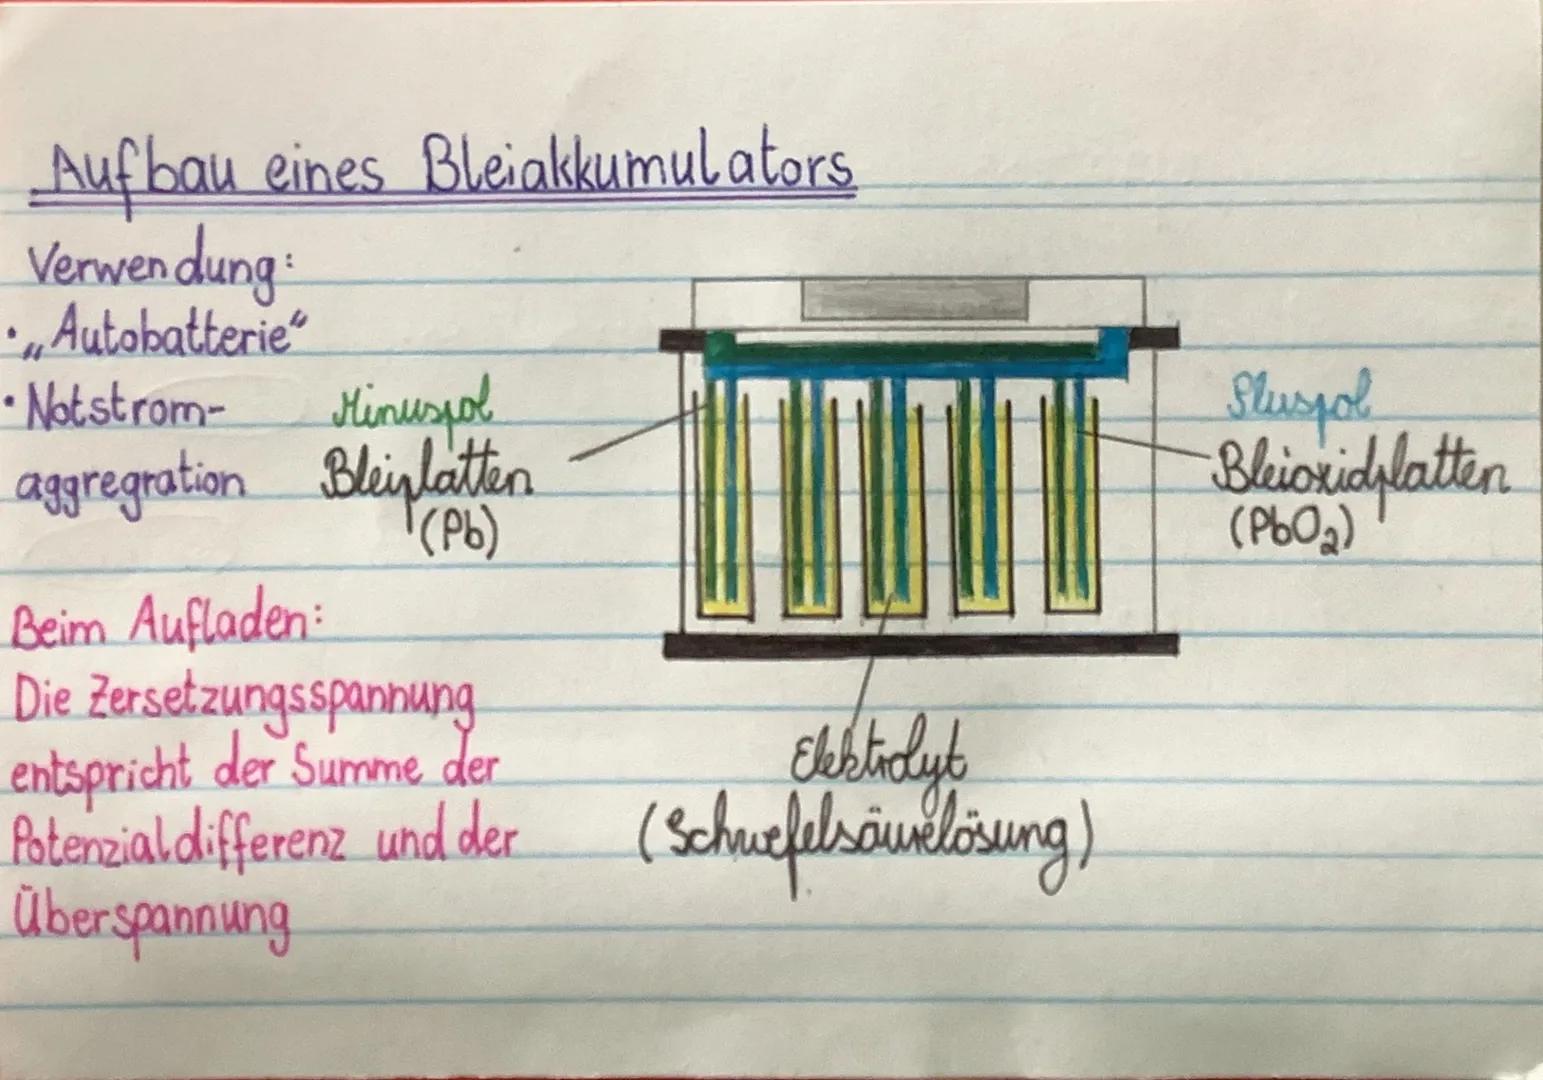 Aufbau eines Bleiakkumulators
Verwendung:
• „Autobatterie“
• Notstrom-
aggregration
Minuspol
Bleiplatten
(Pb)
Pluspol
Bleioxidplatten
(PbO₂)
Beim Aufladen:
Die Zersetzungsspannung
entspricht der Summe der
Potenzialdifferenz und der
Überspannung
Elektrolyt
(Schwefelsäurelösung)